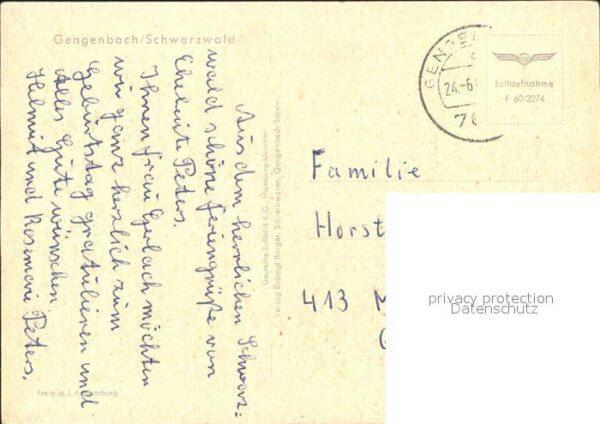 Gengenbach/Schwarzwald
Aus dem herrlichen Schwarz=
wald schöne Feriengrüße von
Eheleute Peters.
Ihnen Frau Gerlach möchten
wir ganz herzlich zum
Geburtstag gratulieren und
alles Gute wünschen
Helmut und Rosemarie Peters.
Deutsche Luftbild K.G., Hamburg-München
Verlag Richard Berger, Schreibwaren, Gengenbach
24.-6
76
Luftaufnahme
F 60/3274
Familie
Horst
413 M
privacy protection
Datenschutz